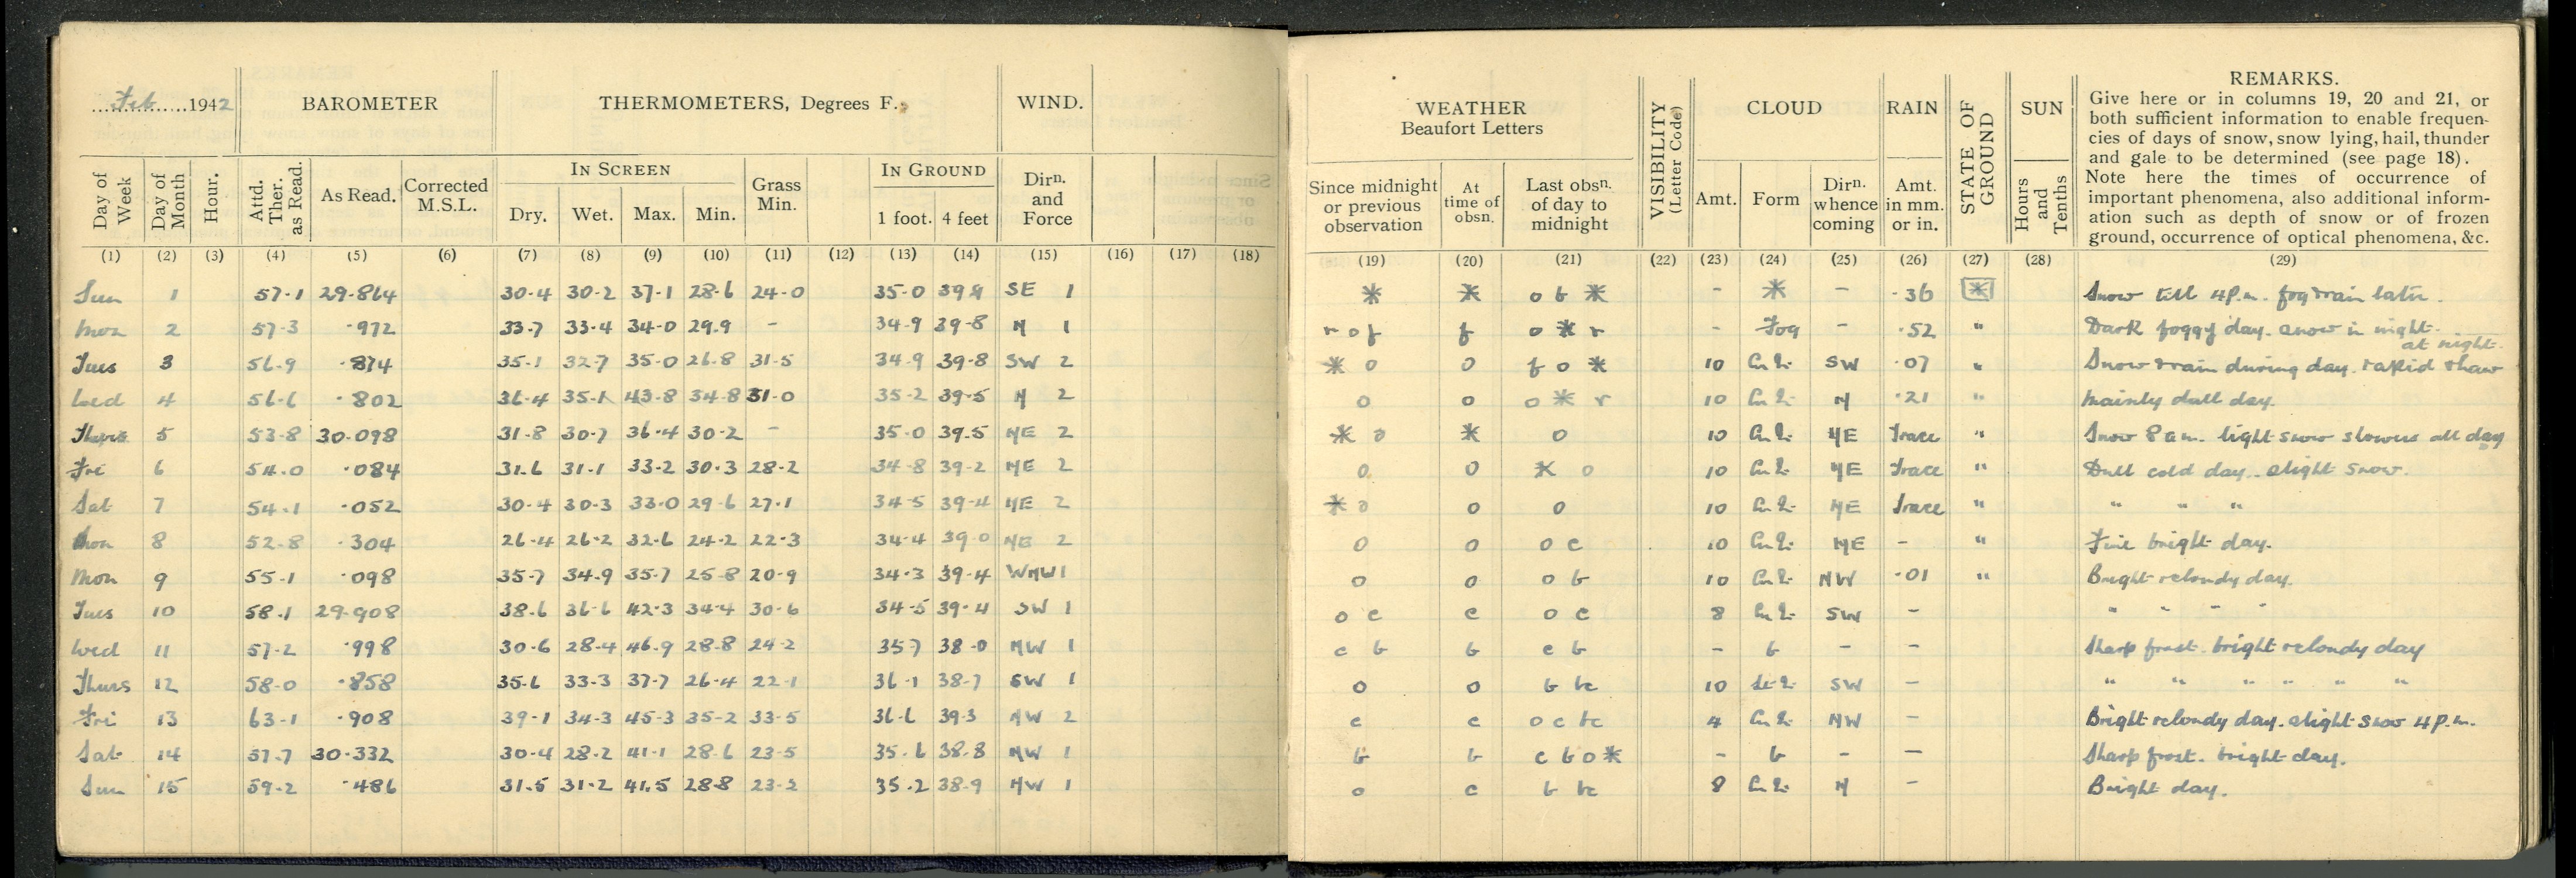 Feb 1942 BAROMETER THERMOMETERS, Degrees F. WIND.
Day of Week Day of Month Hour. Attd. Ther. as Read. As Read. Corrected M.S.L. IN SCREEN Dry. Wet. Max. Min. Grass Min. IN GROUND 1 foot. 4 feet Dirn. and Force
(1) (2) (3) (4) (5) (6) (7) (8) (9) (10) (11) (12) (13) (14) (15) (16) (17) (18)
Sun 1 57.1 29.864 30.4 30.2 37.1 28.6 24.0 35.0 39.9 SE 1
Mon 2 57.3 .972 33.7 33.4 34.0 29.9 - 34.9 39.8 N 1
Tues 3 56.9 .874 35.1 32.7 35.0 26.8 31.5 34.9 39.8 SW 2
Wed 4 56.6 .802 36.4 35.1 43.8 34.8 31.0 35.2 39.5 N 2
Thurs 5 53.8 30.098 31.8 30.7 36.4 30.2 - 35.0 39.5 NE 2
Fri 6 54.0 .084 31.6 31.1 33.2 30.3 28.2 34.8 39.2 NE 2
Sat 7 54.1 .052 30.4 30.3 33.0 29.6 27.1 34.5 39.4 NE 2
8 52.8 .304 26.4 26.2 32.6 24.2 22.3 34.4 39.0 NE 2
Mon 9 55.1 .098 35.7 34.9 35.7 25.8 20.9 34.3 39.4 WNW 1
Tues 10 58.1 29.908 38.6 36.6 42.3 34.4 30.6 34.5 39.4 SW 1
Wed 11 57.2 .998 30.6 28.4 46.9 28.8 24.2 35.7 38.0 NW 1
Thurs 12 58.0 .858 35.6 33.3 37.7 26.4 22.1 36.1 38.7 SW 1
Fri 13 63.1 .908 39.1 34.3 45.3 35.2 33.5 36.6 39.3 NW 2
Sat 14 57.7 30.332 30.4 28.2 41.1 28.6 23.5 35.6 38.8 NW 1
Sun 15 59.2 .486 31.5 31.2 41.5 28.8 23.2 35.2 38.9 NW 1
WEATHER Beaufort Letters VISIBILITY (Letter Code) CLOUD RAIN STATE OF GROUND SUN REMARKS.
Give here or in columns 19, 20 and 21, or
both sufficient information to enable frequen-
cies of days of snow, snow lying, hail, thunder
and gale to be determined (see page 18).
Note here the times of occurrence of
important phenomena, also additional inform-
ation such as depth of snow or of frozen
ground, occurrence of optical phenomena, &c.
Since midnight or previous observation At time of obsn. Last obsn. of day to midnight Amt. Form Dirn. whence coming Amt. in mm. or in. Hours and Tenths
(19) (20) (21) (22) (23) (24) (25) (26) (27) (28) (29)
* * o b * - * - .36 * Snow till 4 P.m. fog & rain later.
r o f f o * r - Fog - .52 " Dark foggy day. snow in night.
* o o f o * 10 SW .07 " Snow & rain during day. rapid thaw at night.
o o o * r 10 N .21 " Mainly dull day.
* o * o 10 NE Trace " Snow 8 am. light snow showers all day
o o * o 10 NE Trace " Dull cold day. slight snow.
* o o o 10 NE Trace " " " "
o o o c 10 NE - " Fine bright day.
o o o b 10 NW .01 " Bright & cloudy day.
o c c o c 8 SW - " " " "
c b b c b - b - - Sharp frost. bright & cloudy day
o o b bc 10 SW - " " " " " "
c c o c bc 4 NW - Bright & cloudy day. slight snow 4 p.m.
b b c b o * - b - - Sharp frost. bright day.
o c b bc 8 N - Bright day.